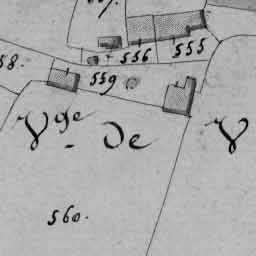 556 555
58. 559
Vge - De V
560.